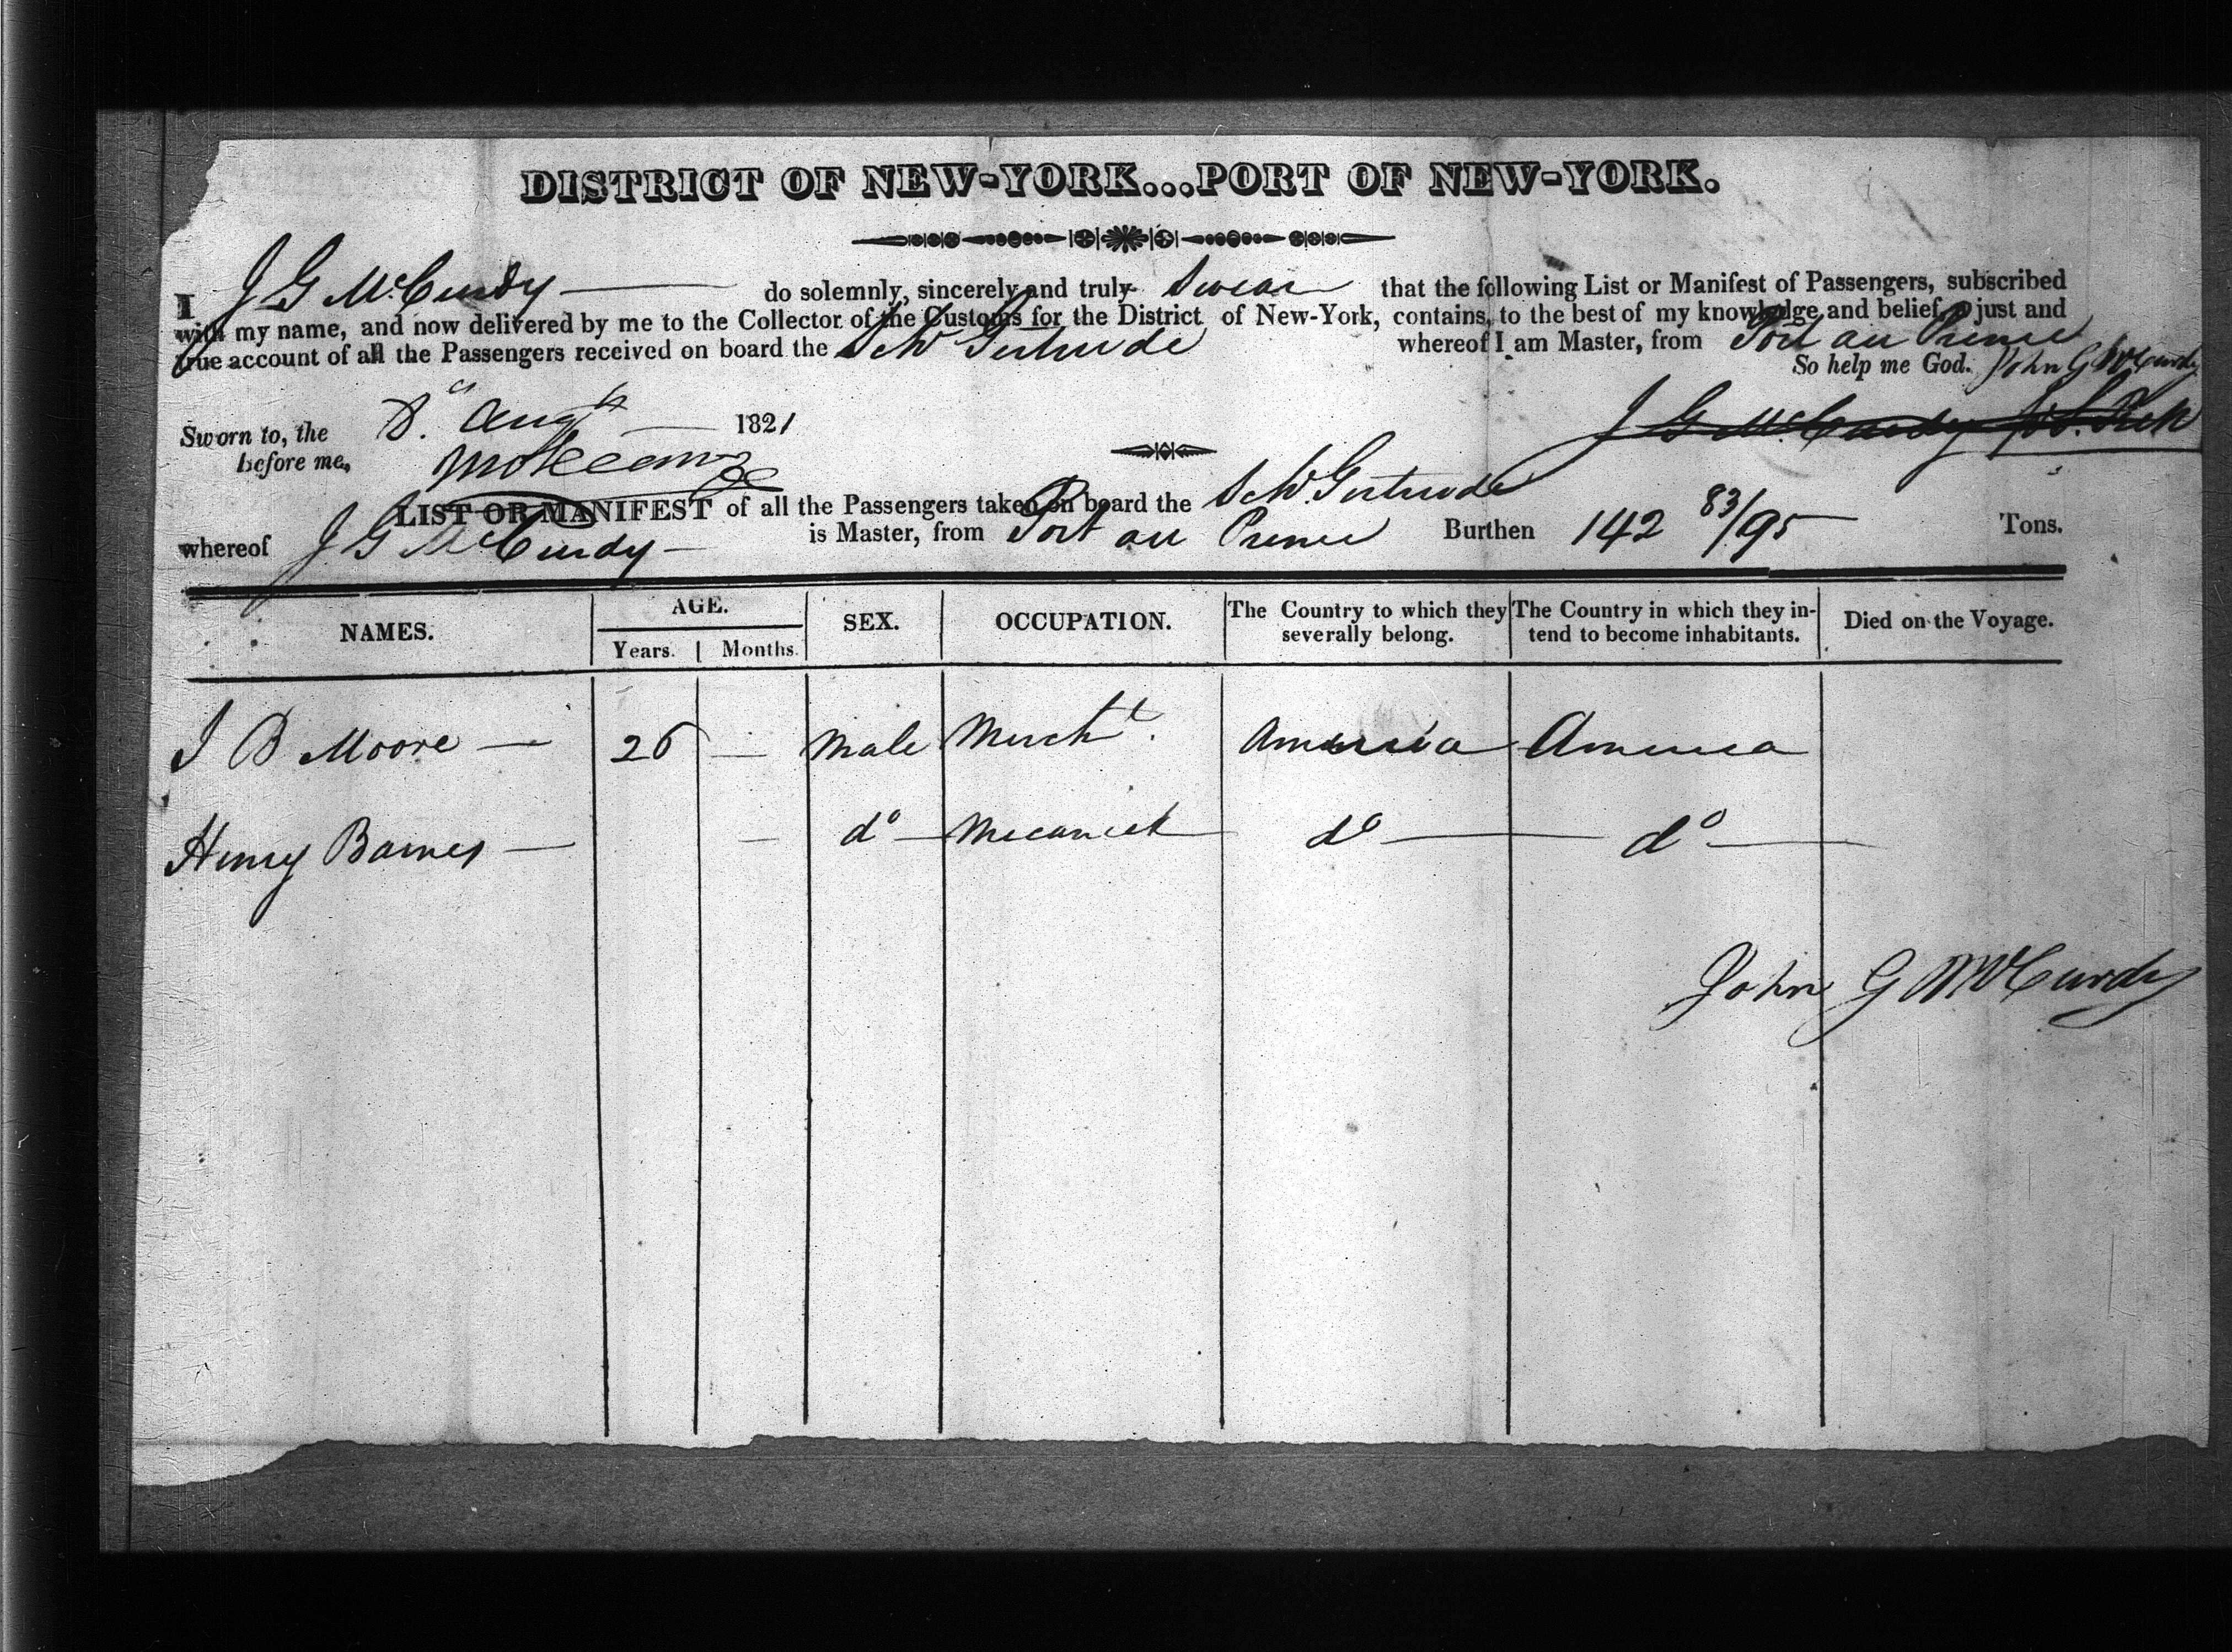 DISTRICT OF NEW-YORK...PORT OF NEW-YORK.
I J G McCurdy do solemnly, sincerely and truly swear that the following List or Manifest of Passengers, subscribed
with my name, and now delivered by me to the Collector of the Customs for the District of New-York, contains, to the best of my knowledge and belief, a just and
true account of all the Passengers received on board the Schr Gertrude whereof I am Master, from Port au Prince
So help me God. John G McCurdy
J G McCurdy
Sworn to, the 8th Augt 1821
before me,
LIST OR MANIFEST of all the Passengers taken on board the Schr Gertrude
whereof J G McCurdy is Master, from Port au Prince Burthen 142 83/95 Tons.
NAMES. AGE. SEX. OCCUPATION. The Country to which they severally belong. The Country in which they intend to become inhabitants. Died on the Voyage.
Years. Months.
J B Moore — 26 — Male Mercht. America America
Henry Barnes — — do — Mecanick do — do —
John G McCurdy